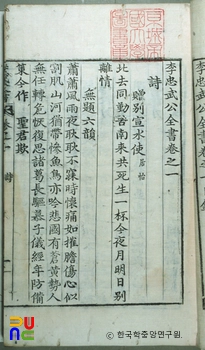 李忠武公全書卷之一
詩
贈別宣水使 居怡
北去同勤苦南來共死生一杯今夜月明日別
離情
無題六韻
蕭蕭風雨夜耿耿不寐時懷痛如摧膽傷心似
割肌山河猶帶慘魚鳥亦吟悲國有蒼黃勢人
無任轉危恢復思諸葛長驅慕子儀經年防備
策今作聖君欺
詩
한국학중앙연구원